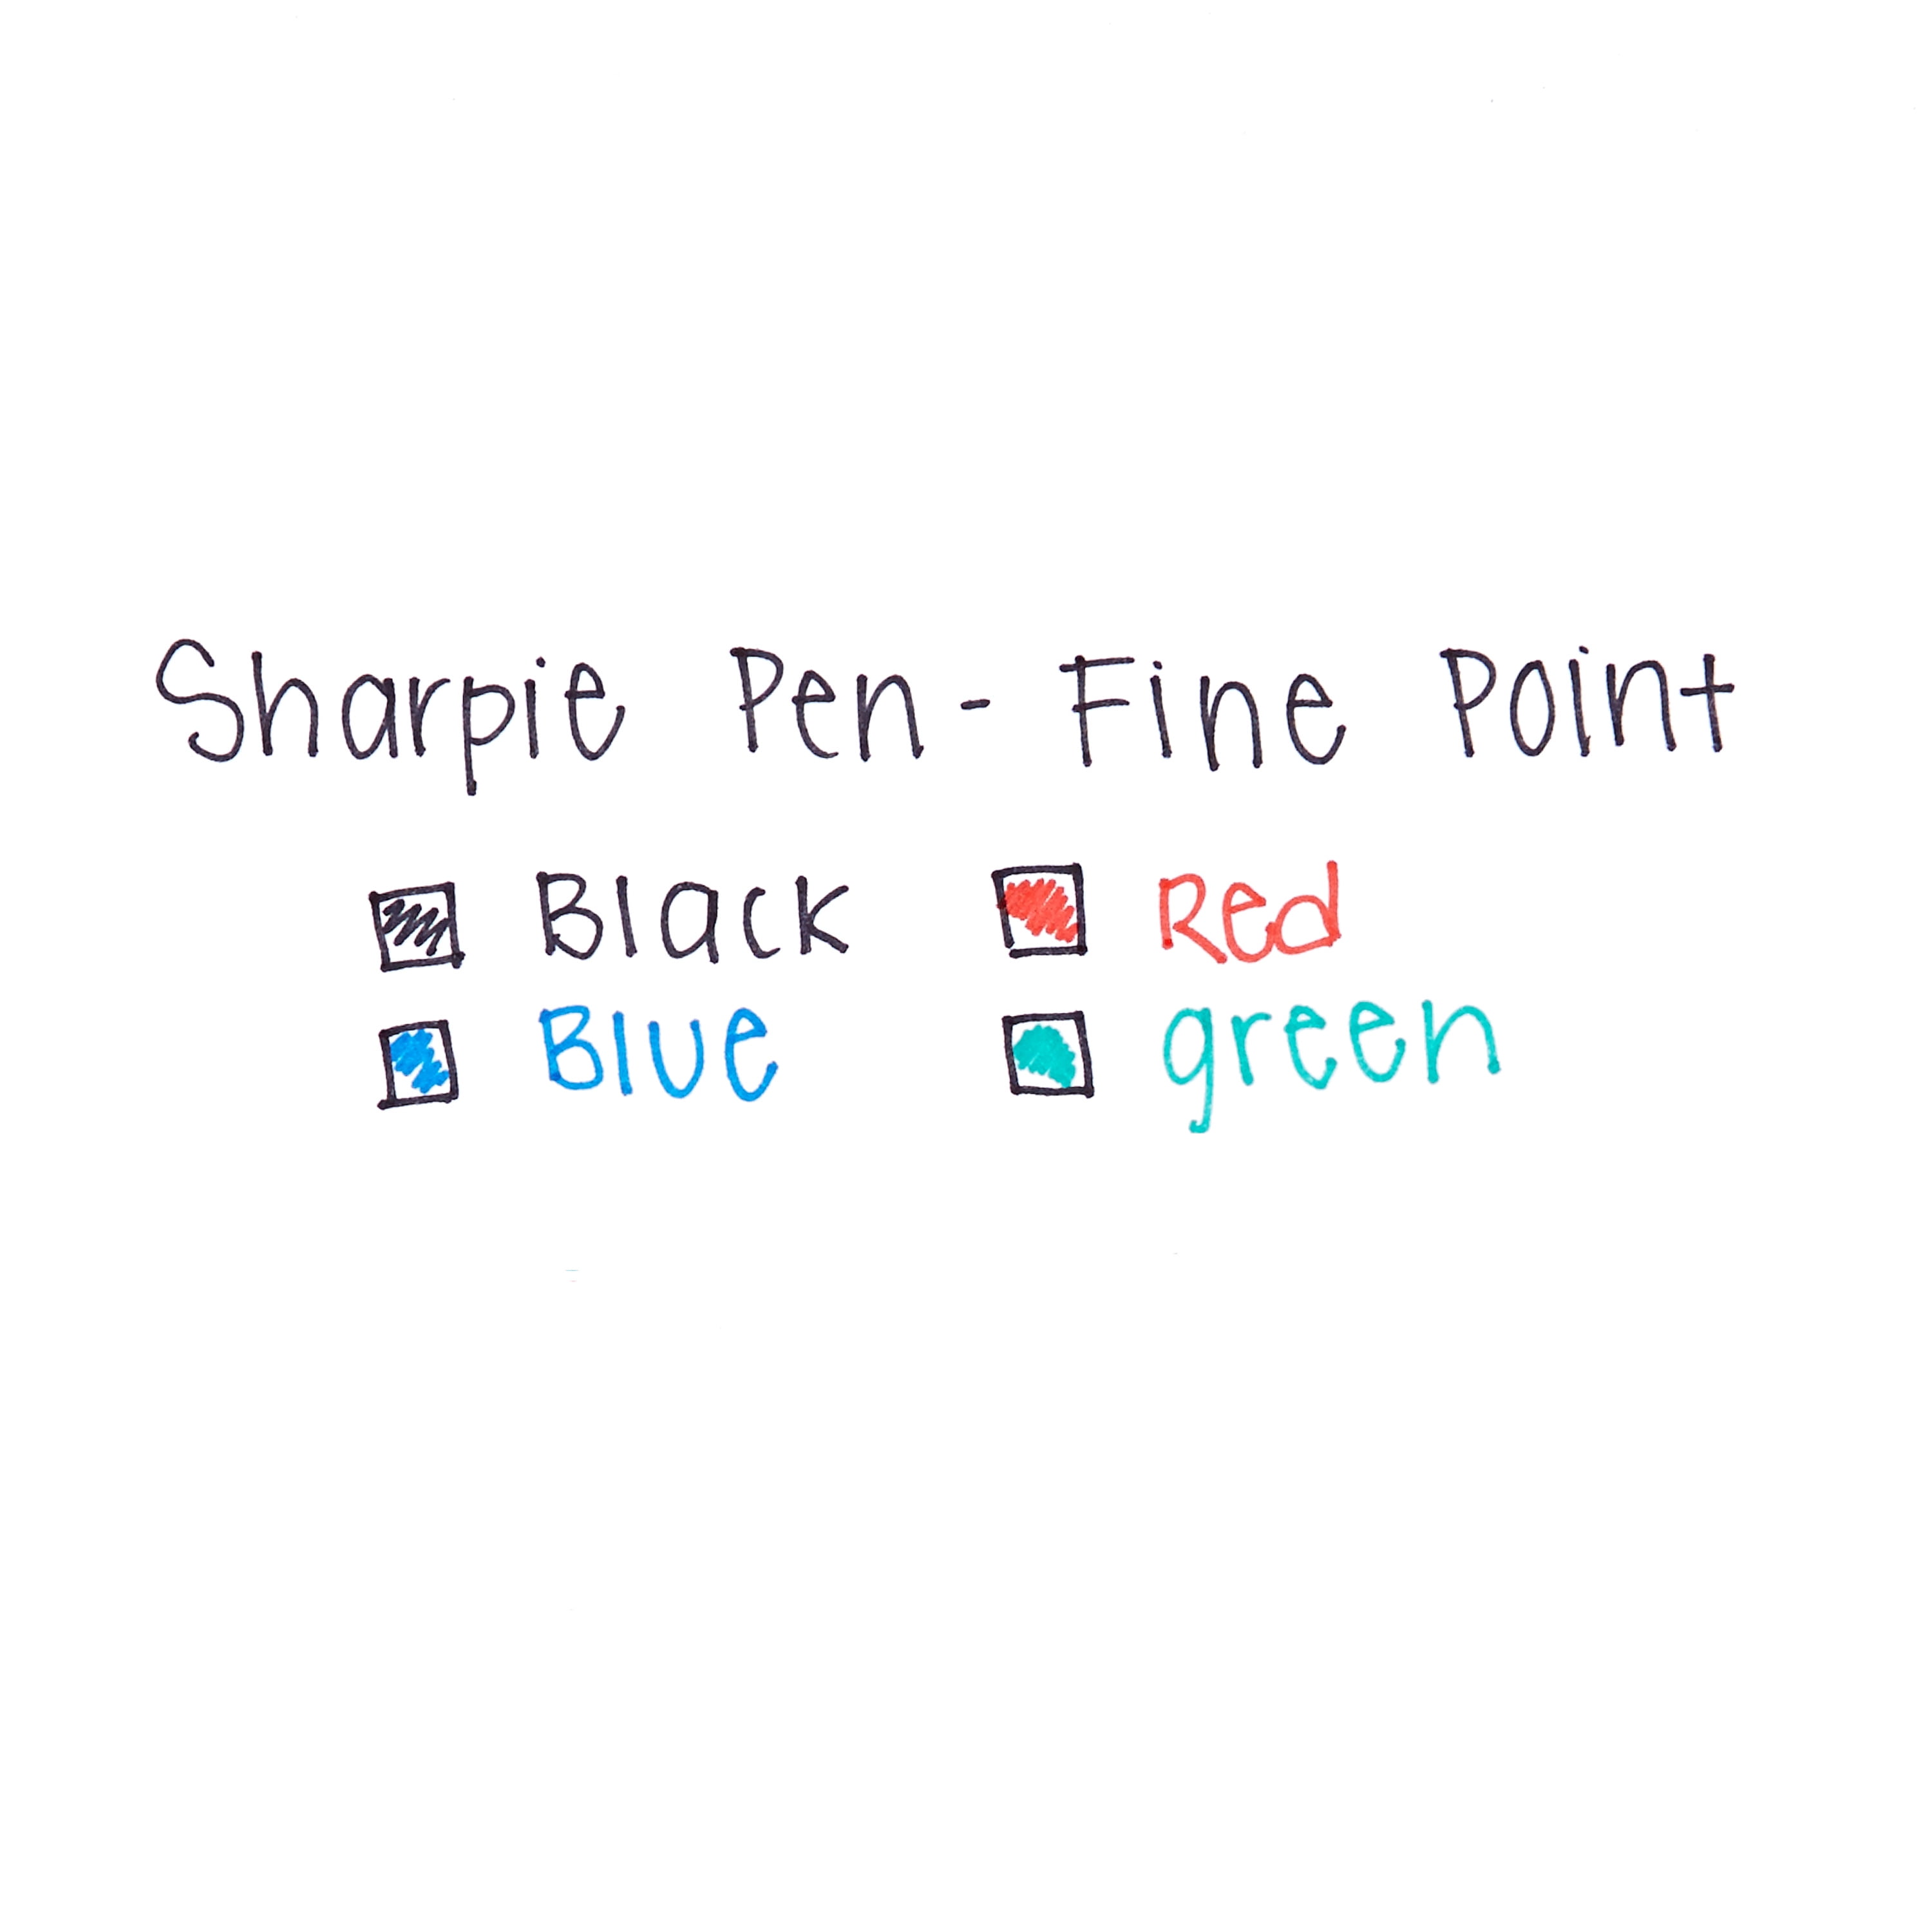 Sharpie Pen - Fine Point
Black Red
Blue green